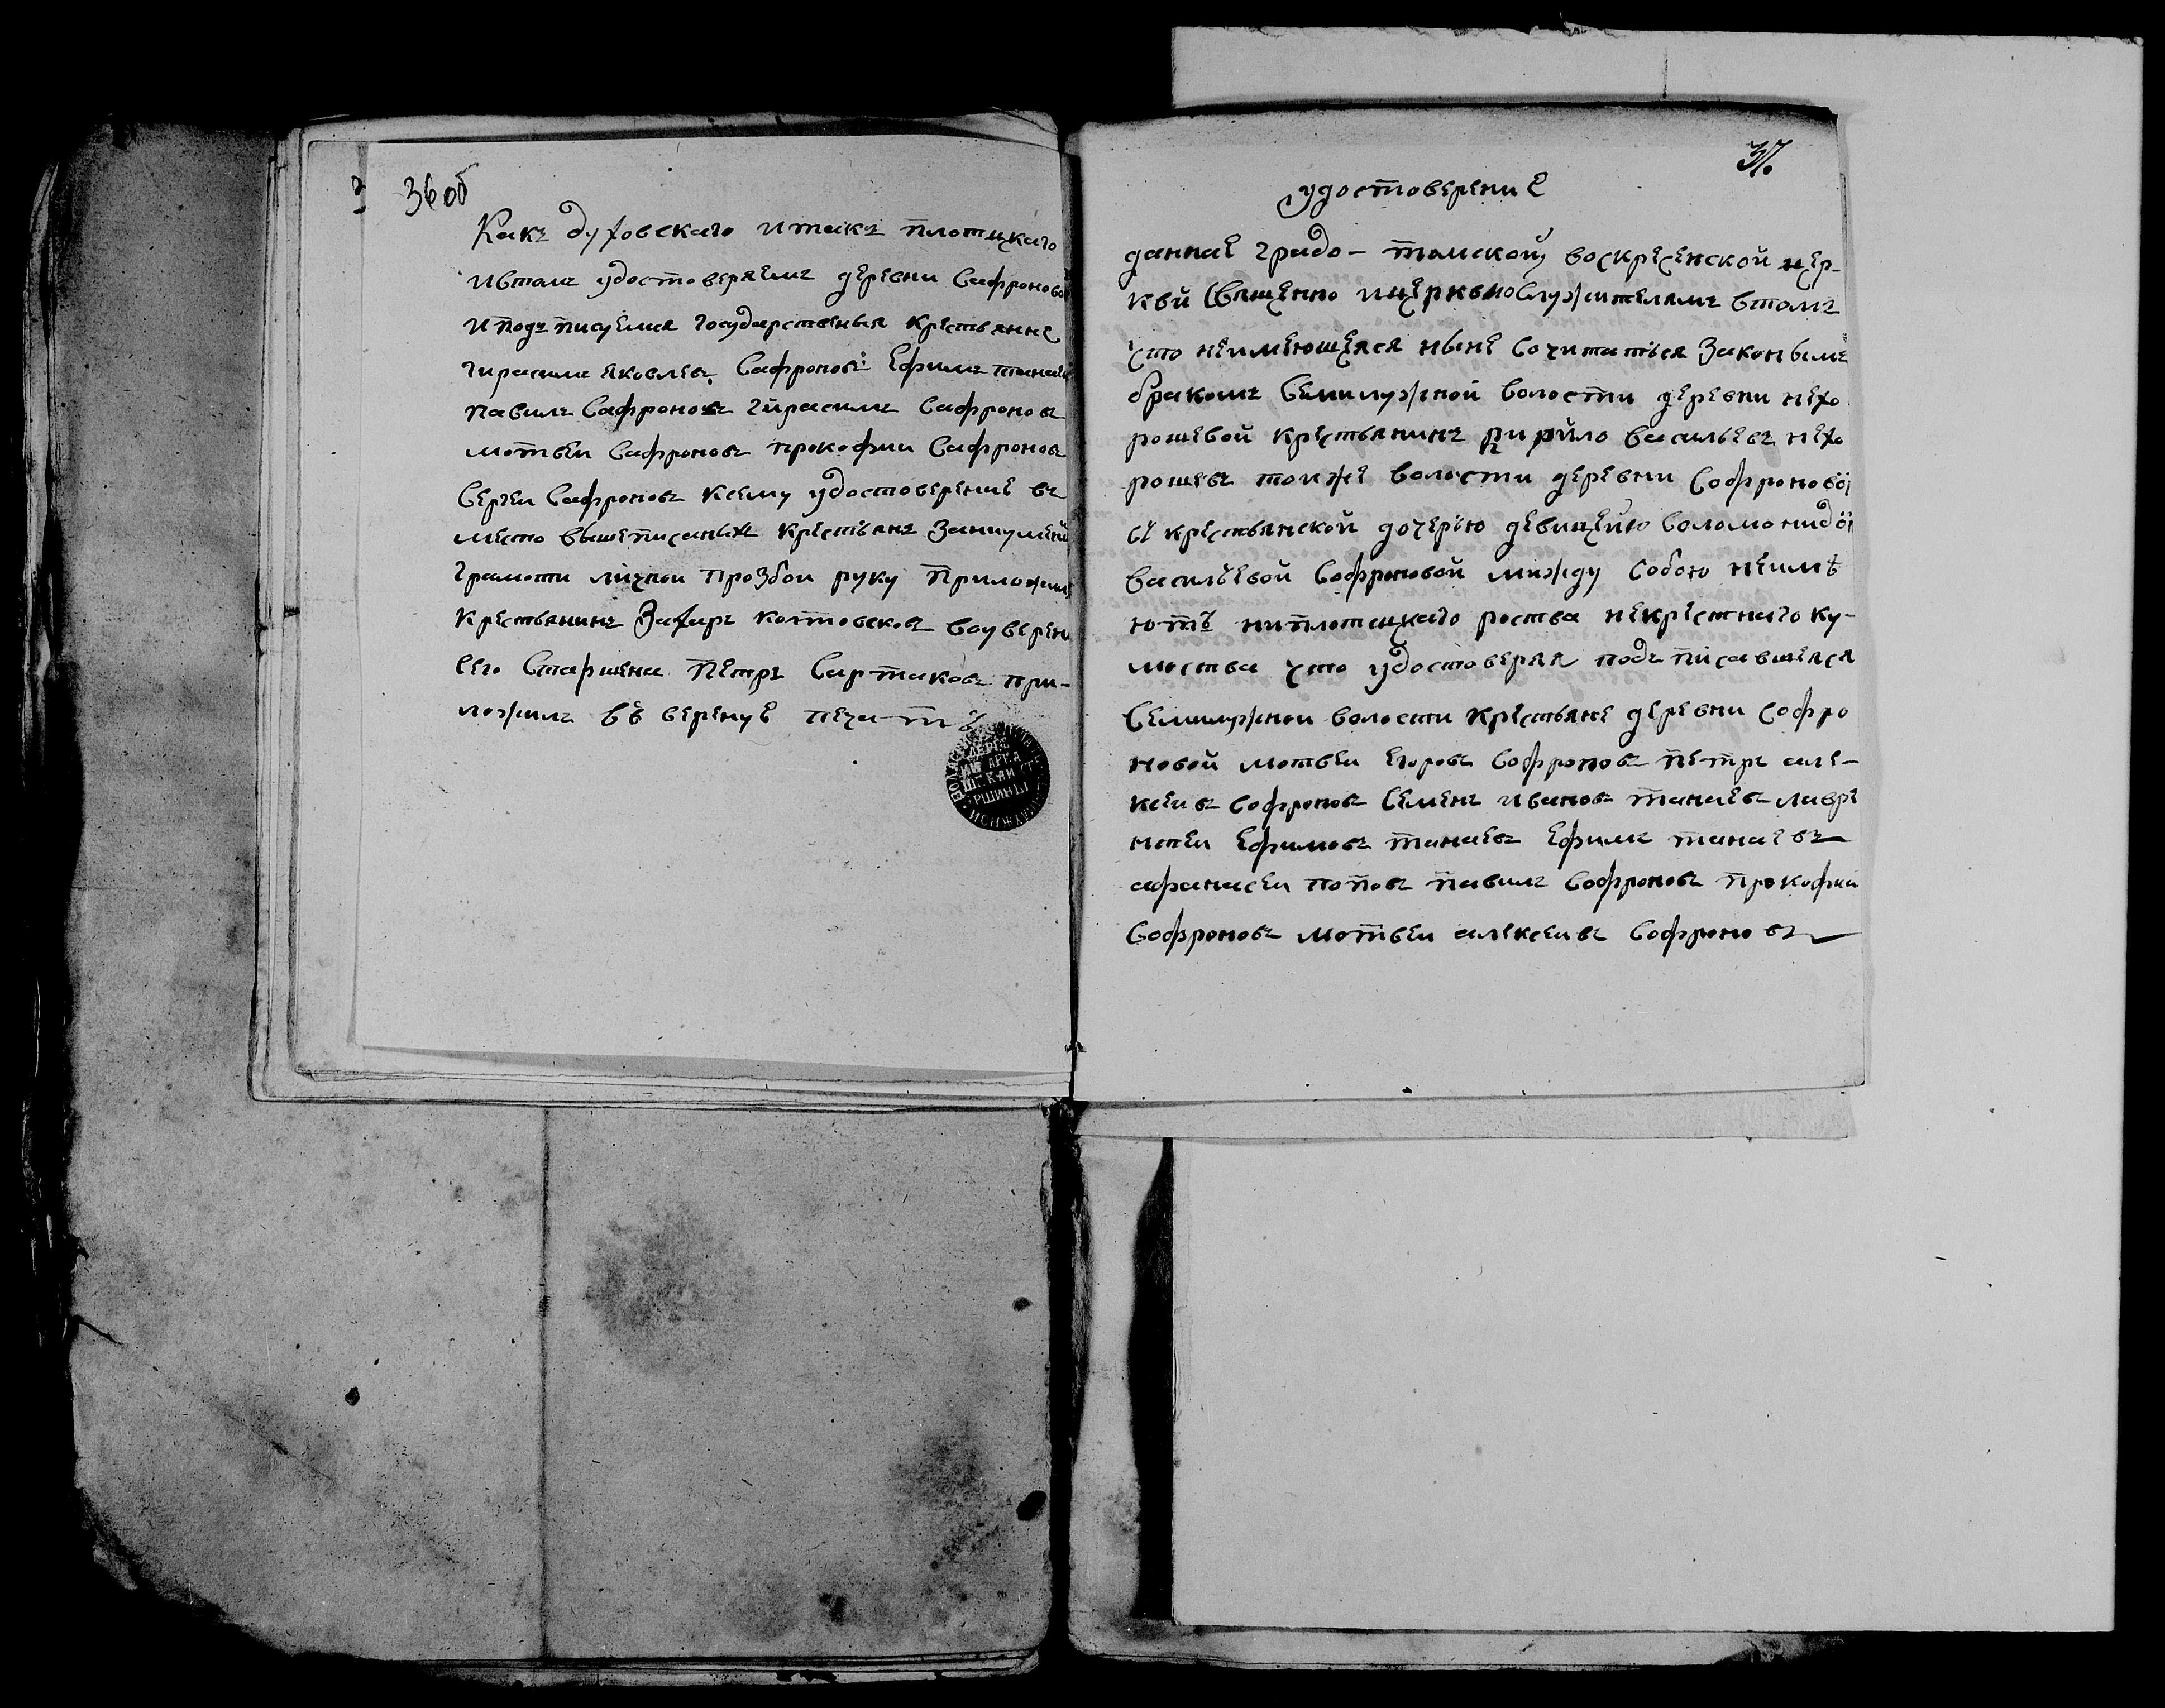 36 об
Какъ духовскаго итакъ плотцкаго
ивтомъ удостоверяемъ деревни Сафроновой
иподъписуемся государственыя крестьянне
гирасимъ яковлевъ Сафроновъ Ефимъ танаев
павилъ Сафроновъ гирасимъ Сафроновъ
мотвеи Сафроновъ прокофии Сафроновъ
Сергеи Сафроновъ ксему удостоверение въ
место вышеписаныхъ крестьянъ Занеумением
грамоти личной прозбои руку приложилъ
крестьянинъ Захаръ котовсковъ воуверени
сего Старшена Петръ Сартаковъ при-
ложилъ въверенуе печать
37.
удостоверение
данная градо-томской воскресенской цер-
квй Священно ицерквнослужителямъ втомъ
что неимеющеяся ныне Сочитатися Законымъ
бракомъ Семилужной волости деревни нехо
рошевой крестьянинъ кирйло васильевъ нехо
рошевъ тойже волости деревни Софроновой
сҍ крестьянской дочерью девицею Соломонидой
васильевой Софроновой между Собою неимѣ
ютъ ниплотцкаго роства некрестнаго ку-
моства что удостоверяя подъписавшеяся
Семилужной волости крестьяне деревни Софро
новой мотвеи Егоровъ Софроновъ петръ але-
ксеивъ Софроновъ Семенъ ивановъ танаевъ лавре
нтеи Ефимовъ танаевъ Ефимъ танаевъ
афанасеи поповъ павилъ Софроновъ прокофии
Софроновъ мотвеи алексеивъ Софроновъ